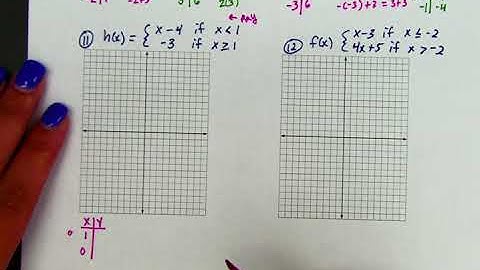 -3 | 6
-(-3)+3 = 3+3
-1 | -4
← part
⑪ h(x) = { x-4 if x<1
-3 if x≥1
⑫ f(x) { x-3 if x≤-2
4x+5 if x>-2
x | y
0 1
0